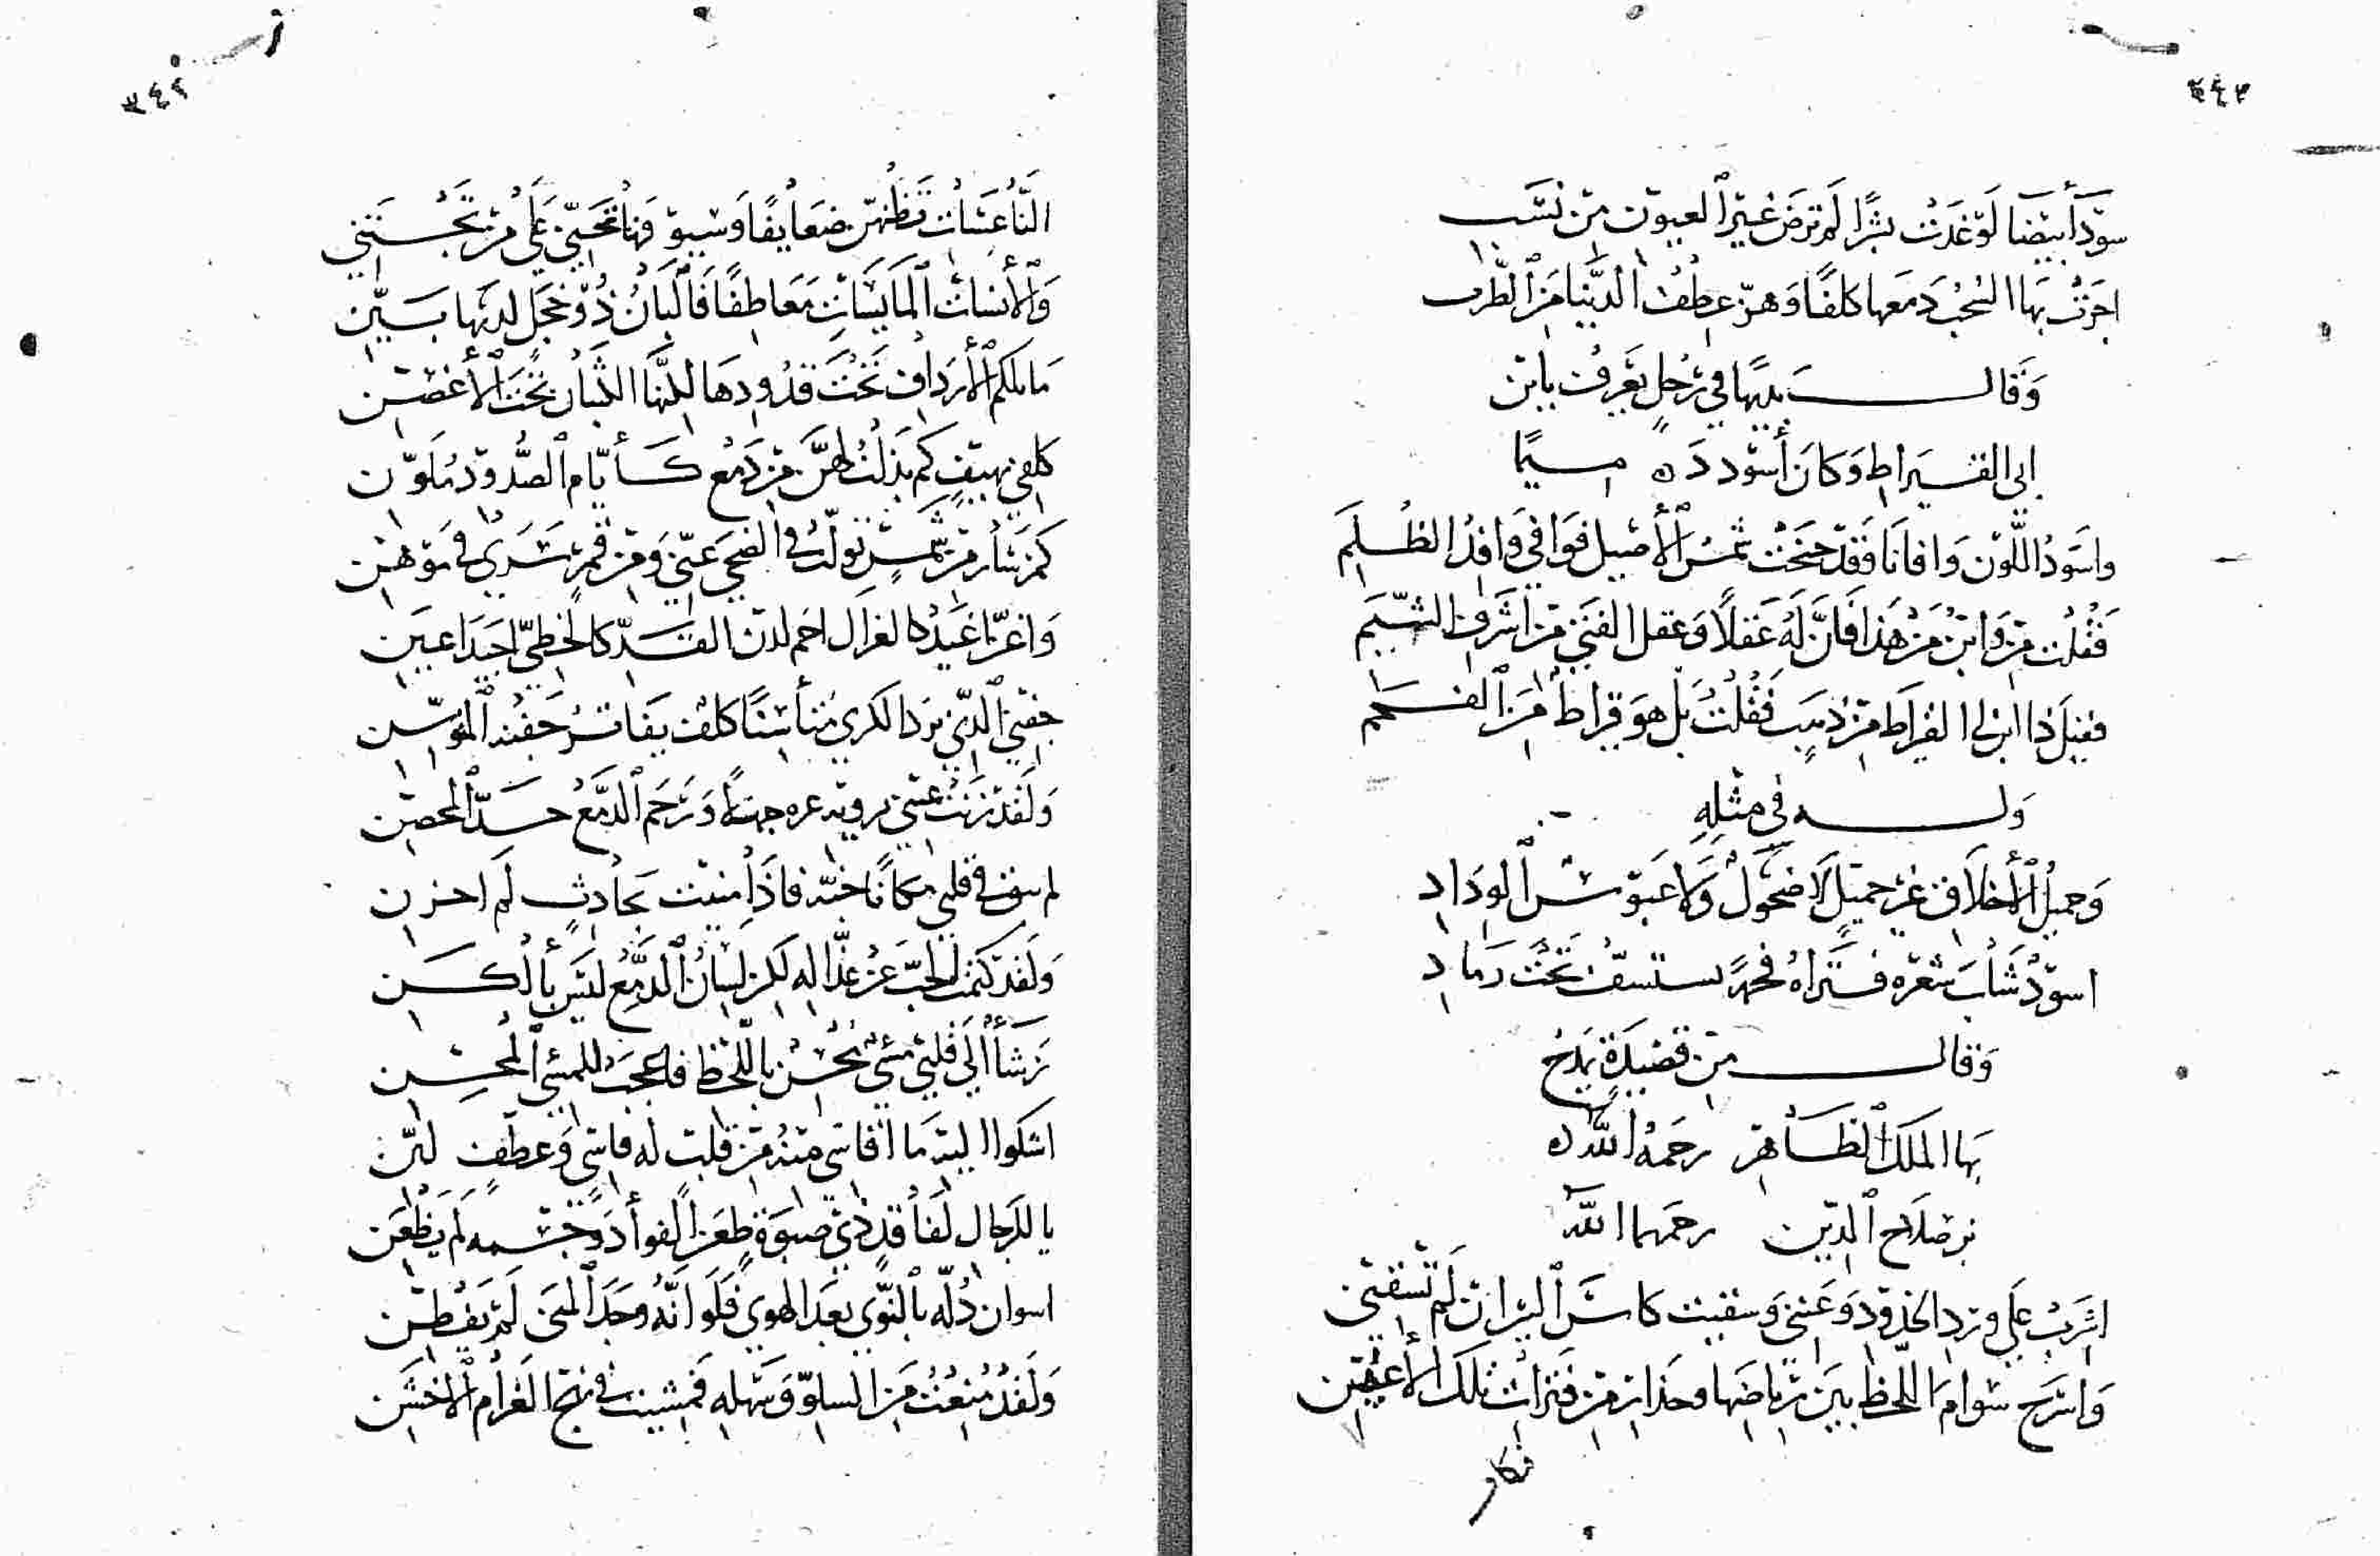 ٣٤٣
سود أبيضا لو غدت بشرا لم ترض غير العيون من نسب
اجرت بها السحب دمعها كلفا وهز عطف الدنيا من الطرب
وقال بديها في رجل يعرف بابن
ابي القيراط وكان أسود ده
واسود اللون وافانا فقد جنحت شمس الأصيل فوافى وافد الظلم
فقلت من وابن من هذا فان له عقلا وعقل الفتى من اشرف الشيم
فقيل ذا ابن ابي القيراط من ذهب فقلت بل هو قيراط من الفحم
وله في مثله
وجميل الأخلاق غير جميل لا ضحوك ولا عبوس الوداد
اسود شاب شعره فتراه فحمة تحت رماد
وقال من قصيدة يمدح
بها الملك الظاهر رحمه الله ه
بن صلاح الدين رحمهما الله
اشرب على ورد الخدود وغنني وسقيت كاس لم تسقني
واسرح سوام اللحظ بين رياضها وحذار من فترات تلك الأعين
فكا
٣٤٢
الناعسات فظهن ضعايفا وسيو فها تحمى على من تجتني
والأنسات المايسات معاطفا فالبان ذو خجل لديها بين
ما ملكم الأرداف تحت قدودها لكنها الكثبان تحت الأغصن
كلفي بهيف كم بذلت لهن من دمع كأيام الصدود ملون
كم بتار من شمس تولت في الضحى عني ومن قمر سرى في موهن
واغر اغيد كالغزال احم لدن القد كالخطي اجيد اعين
جفني الذي يرد الكرى متأسنا كلف بفاتر جفنه الموسن
ولقد زنت عيني برويه غيره جهلا ورجم الدمع حد المحصن
لم يبق في قلبي مكانا حبه فاذا منيت بحادث لم احزن
ولقد كتمت الحب عن عذاله لكن لسان الدمع ليس بألكن
رشأ الى قلبي مسئ محسن باللحظ فاعجب للمسئ المحسن
اشكوا اليه ما اقاسي منه من قلب له قاس وعطف لين
يا للرجال لفاقد ذي صبوة ظعن الفوأد وجسمه لم يظعن
اسوان دله بالنوى بعد الهوى فلو انه وجد المنى لم يفطن
ولقد منعت من السلو وسهله فمشيت في نهج الغرام الأخشن